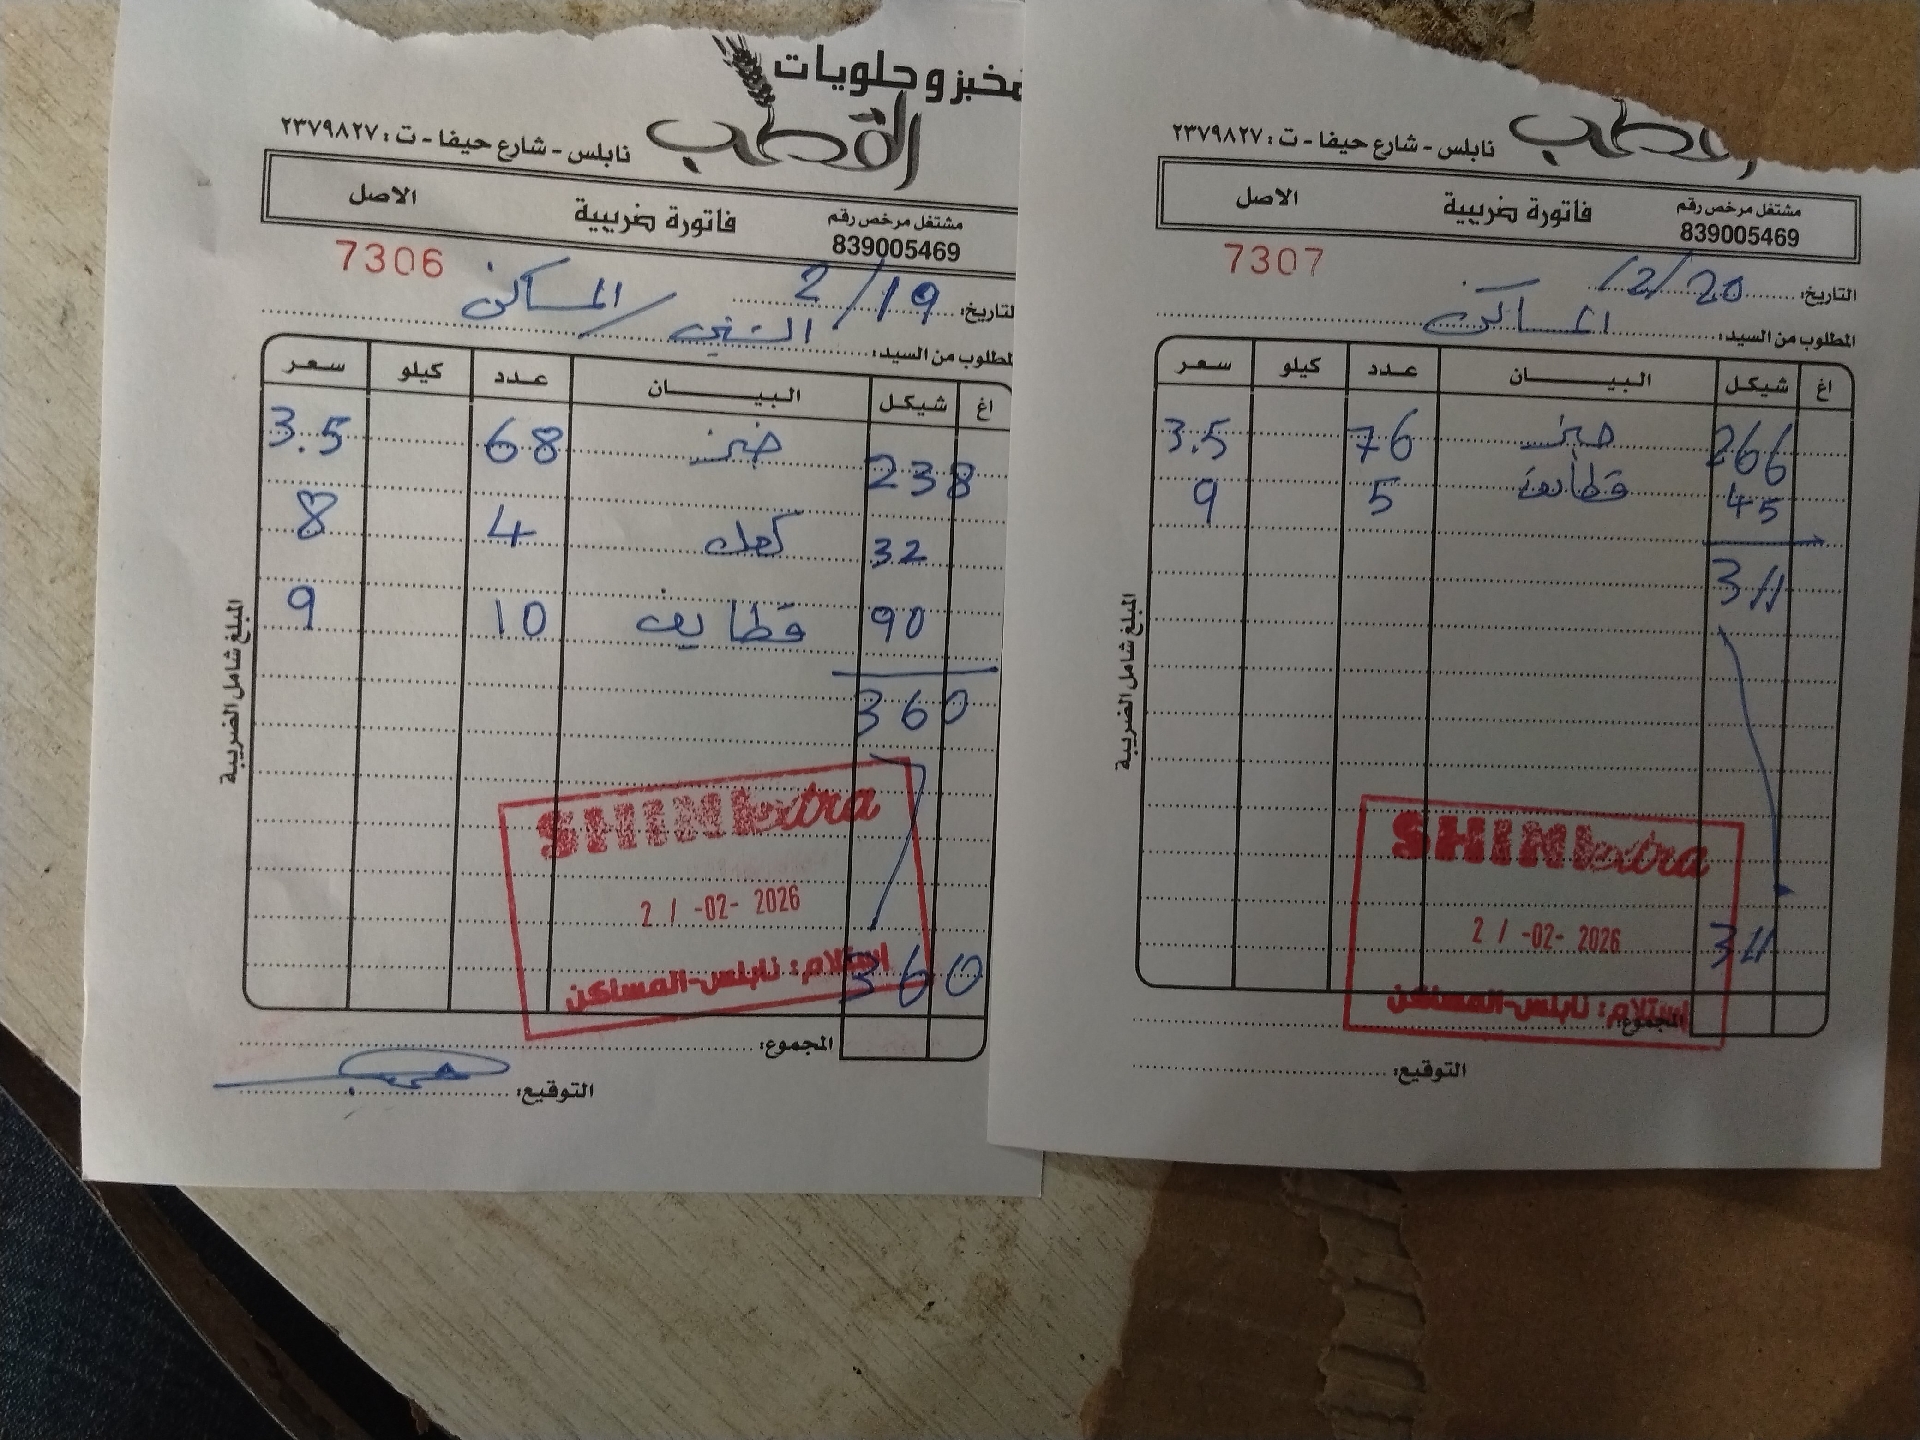 مخبز وحلويات
القطب
نابلس - شارع حيفا - ت : ٢٣٧٩٨٢٧
مشتغل مرخص رقم
839005469
فاتورة ضريبية
الاصل
7306
التاريخ: 2/19
المطلوب من السيد: الشني / المساكن
اغ شيكل البيـــــان عـدد كيلو سـعر
238 خبز 68 3.5
32 كعك 4 8
90 قطايف 10 9
360
SHINI extra
21 -02- 2026
استلام: نابلس-المساكن
360
المجموع:
التوقيع:
المبلغ شامل الضريبة
القطب
نابلس - شارع حيفا - ت : ٢٣٧٩٨٢٧
مشتغل مرخص رقم
839005469
فاتورة ضريبية
الاصل
7307
التاريخ: 2/20/
المطلوب من السيد: المساكن
اغ شيكل البيـــــان عـدد كيلو سـعر
266 خبز 76 3.5
45 قطايف 5 9
311
SHINI extra
21 -02- 2026
311
استلام: نابلس-المساكن
المجموع:
التوقيع:
المبلغ شامل الضريبة